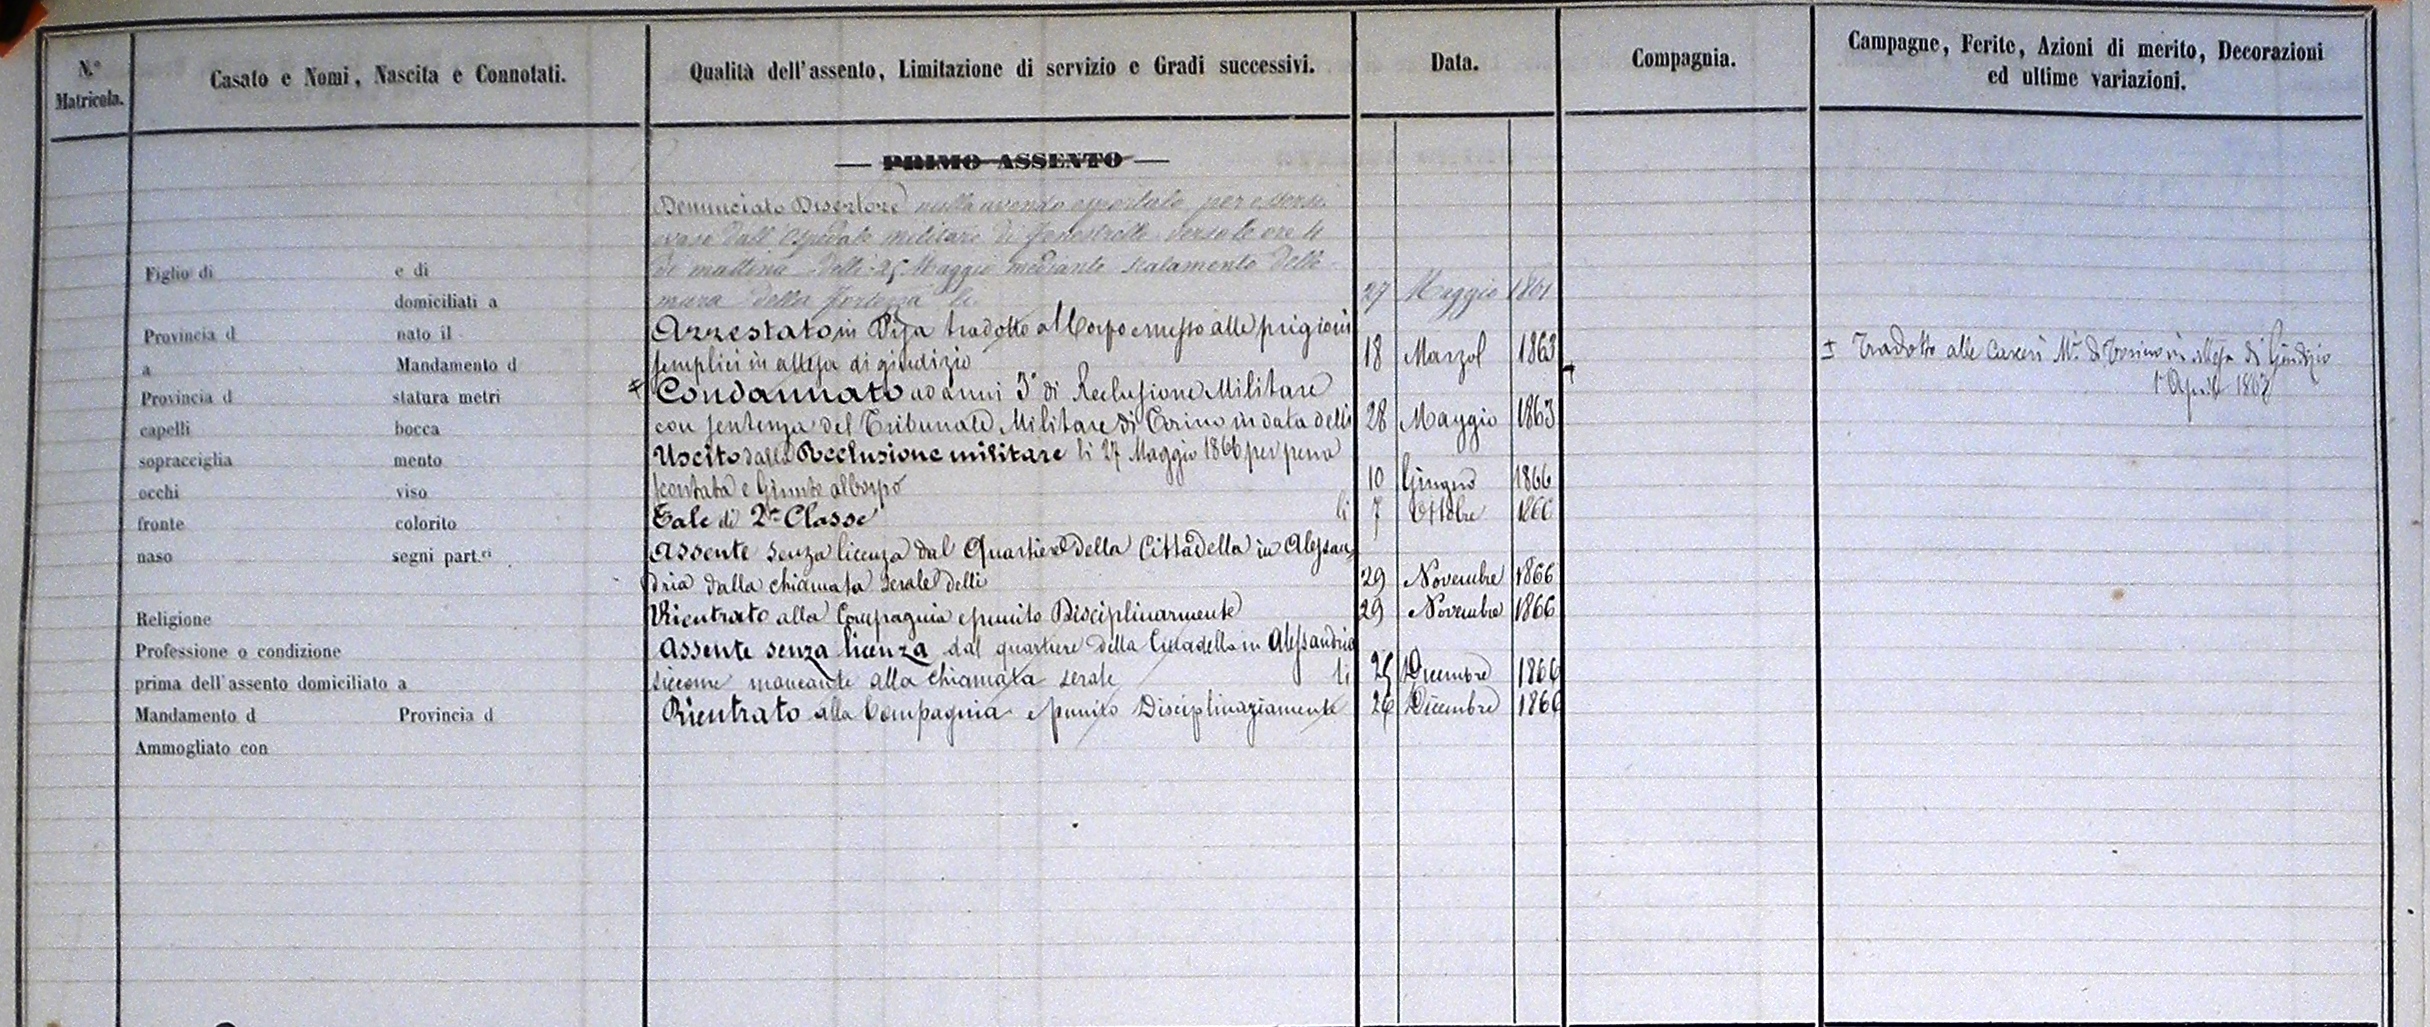 N.° Matricola.
Casato e Nomi, Nascita e Connotati.
Qualità dell'assento, Limitazione di servizio e Gradi successivi.
Data.
Compagnia.
Campagne, Ferite, Azioni di merito, Decorazioni
ed ultime variazioni.
— PRIMO ASSENTO —
Figlio di e di
domiciliati a
Provincia d nato il
a Mandamento d
Provincia d statura metri
capelli bocca
sopracciglia mento
occhi viso
fronte colorito
naso segni part.ri
Religione
Professione o condizione
prima dell'assento domiciliato a
Mandamento d Provincia d
Ammogliato con
Denunciato Disertore nulla avendo asportato per essersi
evaso dall'Ospedale militare di Fenestrelle verso le ore 4
di mattina delli 25 Maggio mediante scalamento delle
mura della fortezza li 27 Maggio 1861
Arrestato in Pisa tradotto al Corpo e messo alle prigioni
semplici in attesa di giudizio 18 Marzo 1863
Condannato ad anni 3 di Reclusione Militare
con sentenza del Tribunale Militare di Torino in data delli 28 Maggio 1863
Uscito dalla Reclusione militare li 27 Maggio 1866 per pena
scontata e Giunto al Corpo 10 Giugno 1866
Tale di 2a Classe li 7 Ottobre 1866
Assente senza licenza dal Quartiere della Cittadella in Alessan
dria dalla chiamata serale delli 29 Novembre 1866
Rientrato alla Compagnia e punito Disciplinarmente 29 Novembre 1866
Assente senza licenza dal quartiere della Cittadella in Alessandria
siccome mancante alla chiamata serale li 25 Dicembre 1866
Rientrato alla Compagnia e punito Disciplinariamente 26 Dicembre 1866
± Tradotto alle Carceri M.i di Torino in attesa di Giudizio
1° Aprile 1863